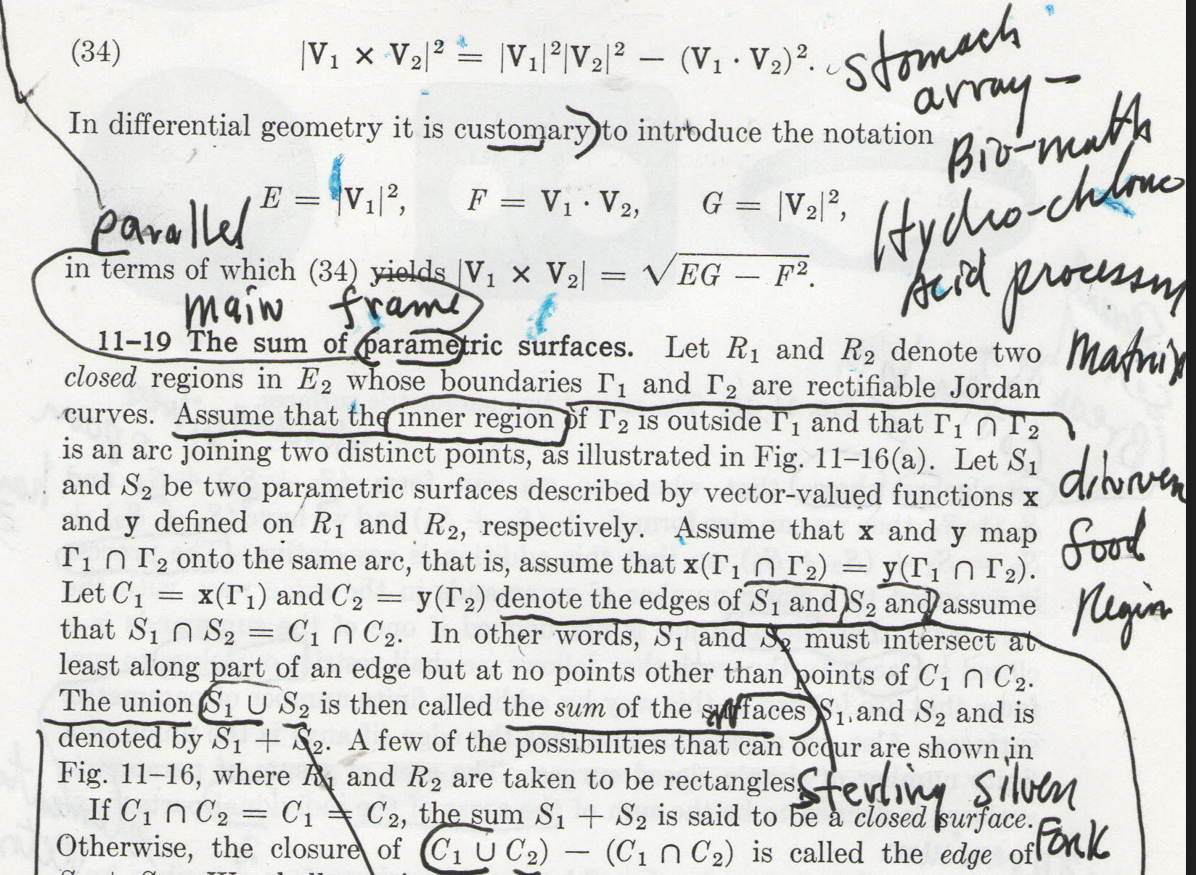 (34) |V₁ × V₂|² = |V₁|²|V₂|² − (V₁ · V₂)².
stomach
array –
In differential geometry it is customary to introduce the notation
Bio-math
E = |V₁|², F = V₁ · V₂, G = |V₂|²,
Hydro-chloric
parallel
in terms of which (34) yields |V₁ × V₂| = √(EG − F²).
Acid processing
main frame
11–19 The sum of parametric surfaces. Let R₁ and R₂ denote two
Matrix
closed regions in E₂ whose boundaries Γ₁ and Γ₂ are rectifiable Jordan
curves. Assume that the inner region of Γ₂ is outside Γ₁ and that Γ₁ ∩ Γ₂
is an arc joining two distinct points, as illustrated in Fig. 11–16(a). Let S₁
and S₂ be two parametric surfaces described by vector-valued functions x
and y defined on R₁ and R₂, respectively. Assume that x and y map
food
Γ₁ ∩ Γ₂ onto the same arc, that is, assume that x(Γ₁ ∩ Γ₂) = y(Γ₁ ∩ Γ₂).
Let C₁ = x(Γ₁) and C₂ = y(Γ₂) denote the edges of S₁ and S₂ and assume
Region
that S₁ ∩ S₂ = C₁ ∩ C₂. In other words, S₁ and S₂ must intersect at
least along part of an edge but at no points other than points of C₁ ∩ C₂.
The union S₁ ∪ S₂ is then called the sum of the surfaces S₁ and S₂ and is
denoted by S₁ + S₂. A few of the possibilities that can occur are shown in
Fig. 11–16, where R₁ and R₂ are taken to be rectangles.
Sterling Silver
If C₁ ∩ C₂ = C₁ = C₂, the sum S₁ + S₂ is said to be a closed surface.
Fork
Otherwise, the closure of (C₁ ∪ C₂) − (C₁ ∩ C₂) is called the edge of